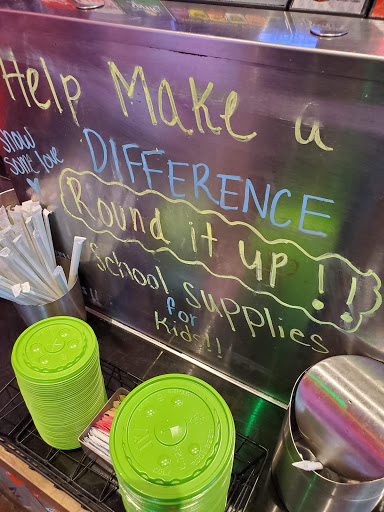 Help Make a
show
some love
DIFFERENCE
Round it up!!
School Supplies
for
Kids!!